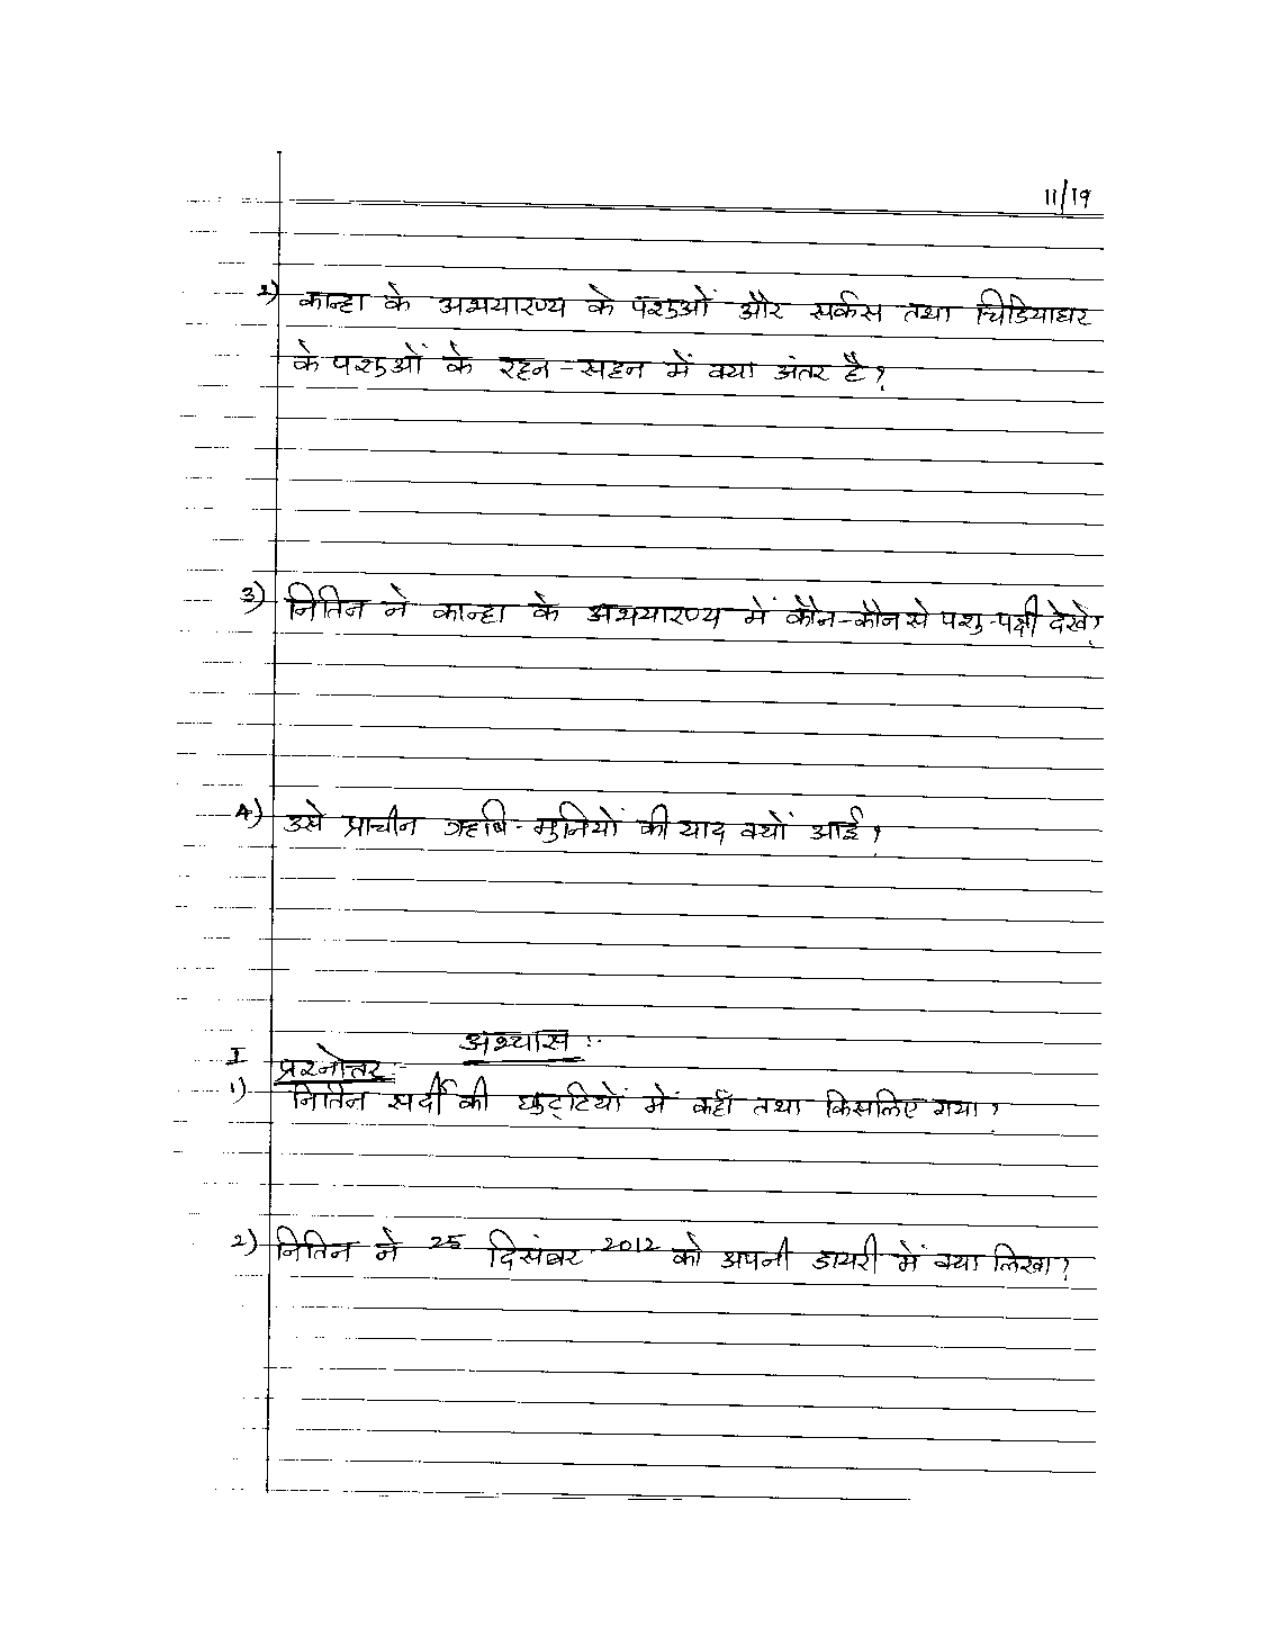 11/19
2) कान्हा के अभयारण्य के पशुओं और सर्कस तथा चिडियाघर
के पशुओं के रहन-सहन में क्या अंतर है?
3) नितिन ने कान्हा के अभयारण्य में कौन-कौन से पशु-पक्षी देखे?
4) उसे प्राचीन ऋषि-मुनियों की याद क्यों आई?
अभ्यास :-
I प्रश्नोत्तर:-
1) नितिन सर्दी की छुट्टियों में कहाँ तथा किसलिए गया?
2) नितिन ने 25 दिसंबर 2012 को अपनी डायरी में क्या लिखा?